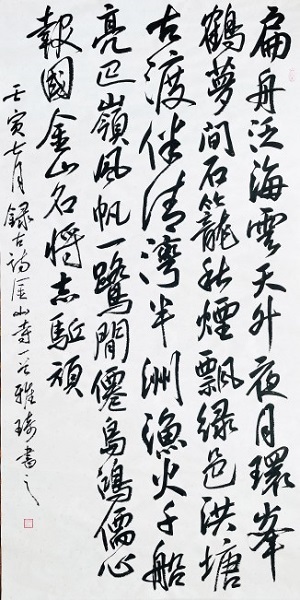 扁舟泛海雲天外夜月環峯
鶴夢間石籠秋煙飄綠邑洪塘
古渡伴清灣半洲漁火千船
亮巴嶺風帆一鷺閒僊島鴻儒心
報國金山名將志駈頑
壬寅七月錄古詩金山寺一首雅琦書之